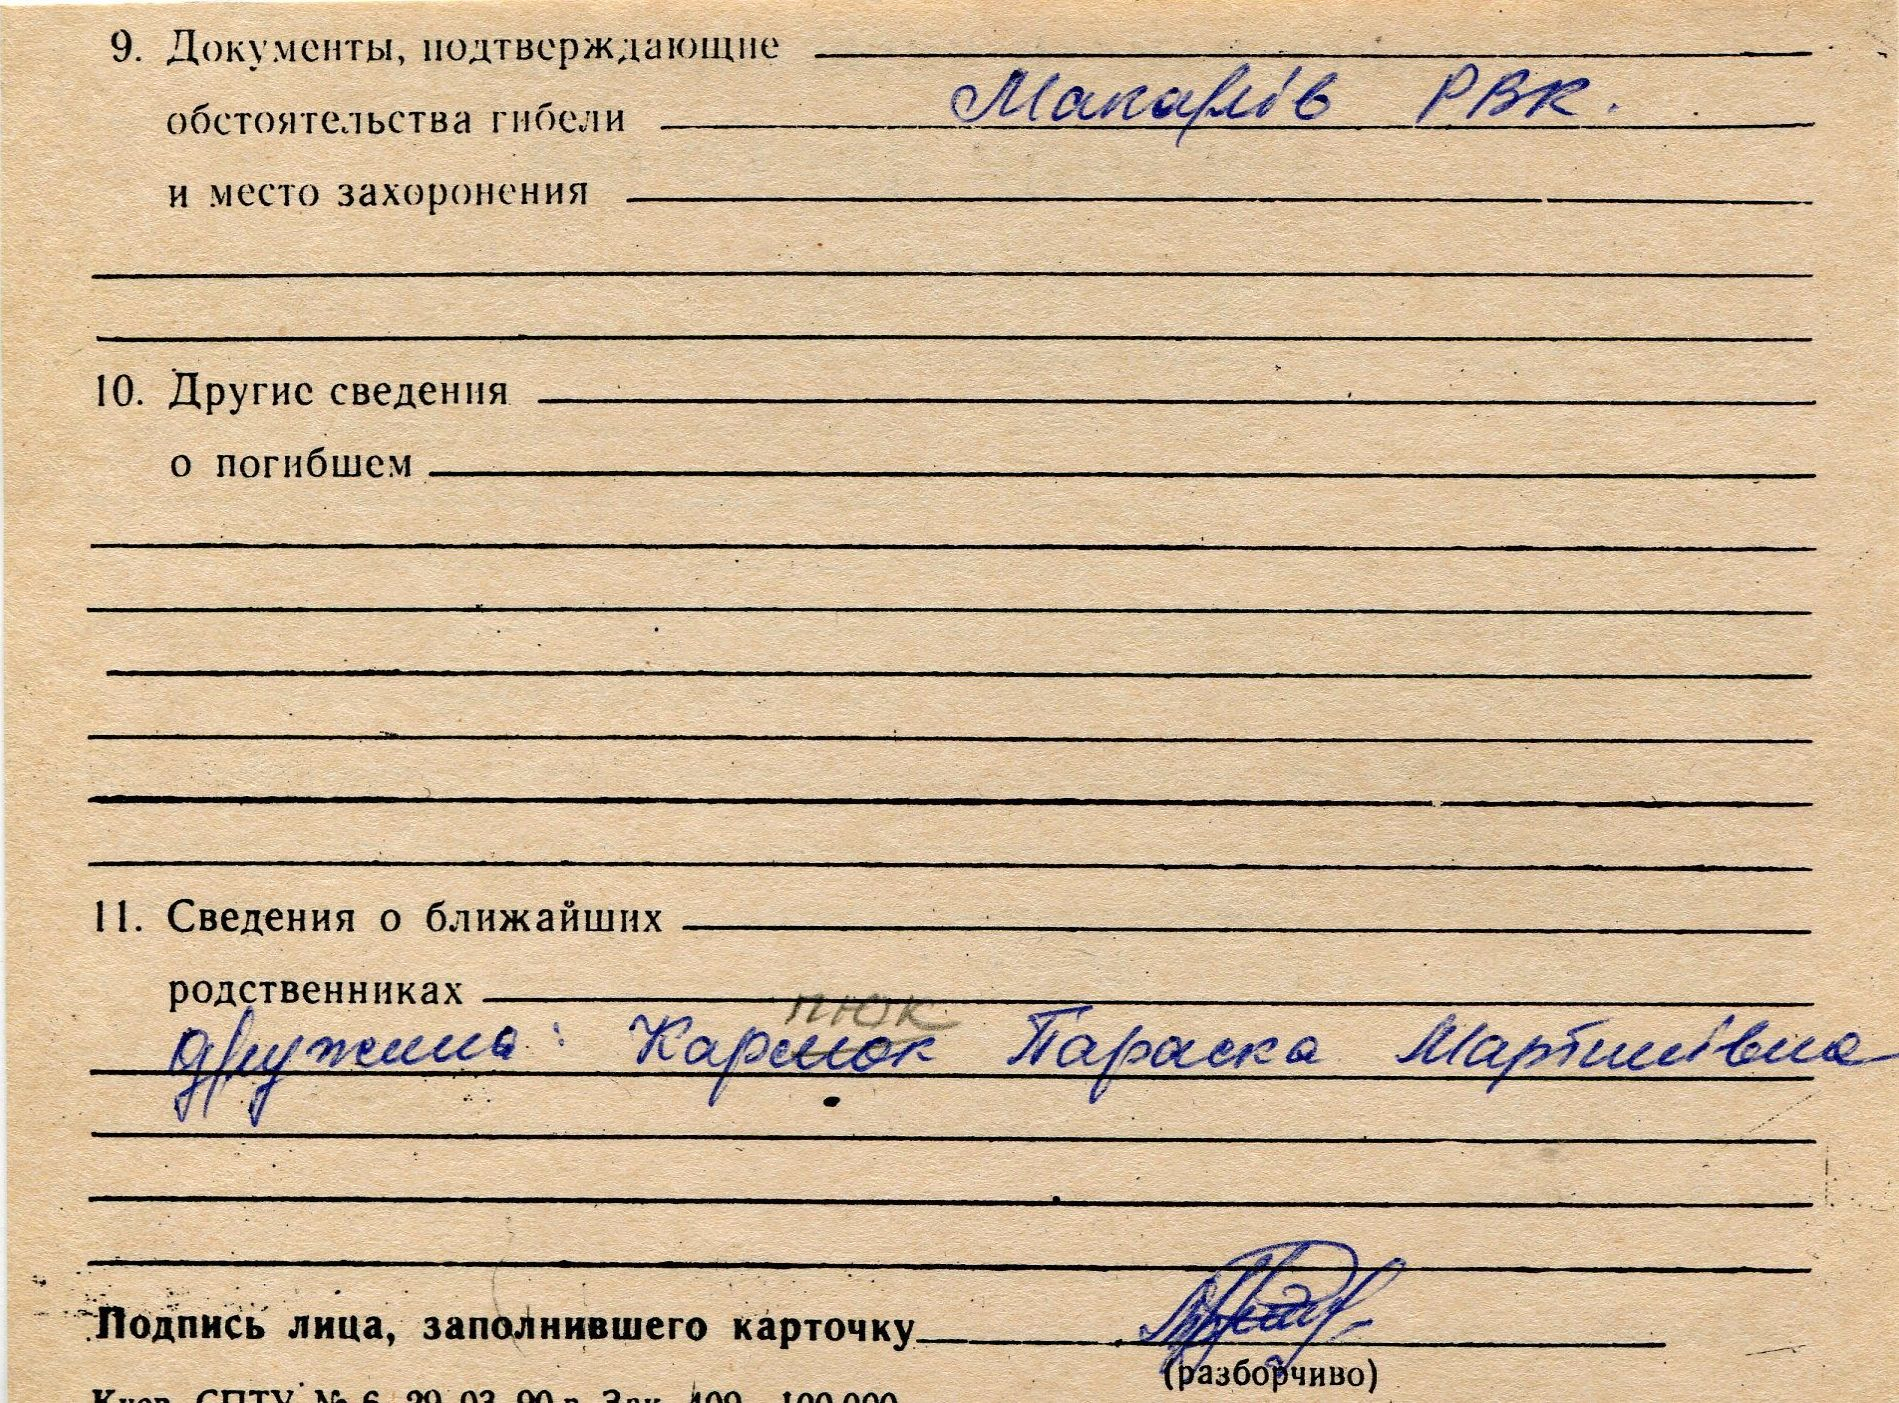 9. Документы, подтверждающие
обстоятельства гибели Макарів РВК.
и место захоронения
10. Другие сведения
о погибшем
11. Сведения о ближайших
родственниках
пюк
дружина: Кармюк Параска Мартинівна
Подпись лица, заполнившего карточку
(разборчиво)
Киев, СПТУ № 6, 29. 03. 90 г. Зак. 409—100.000